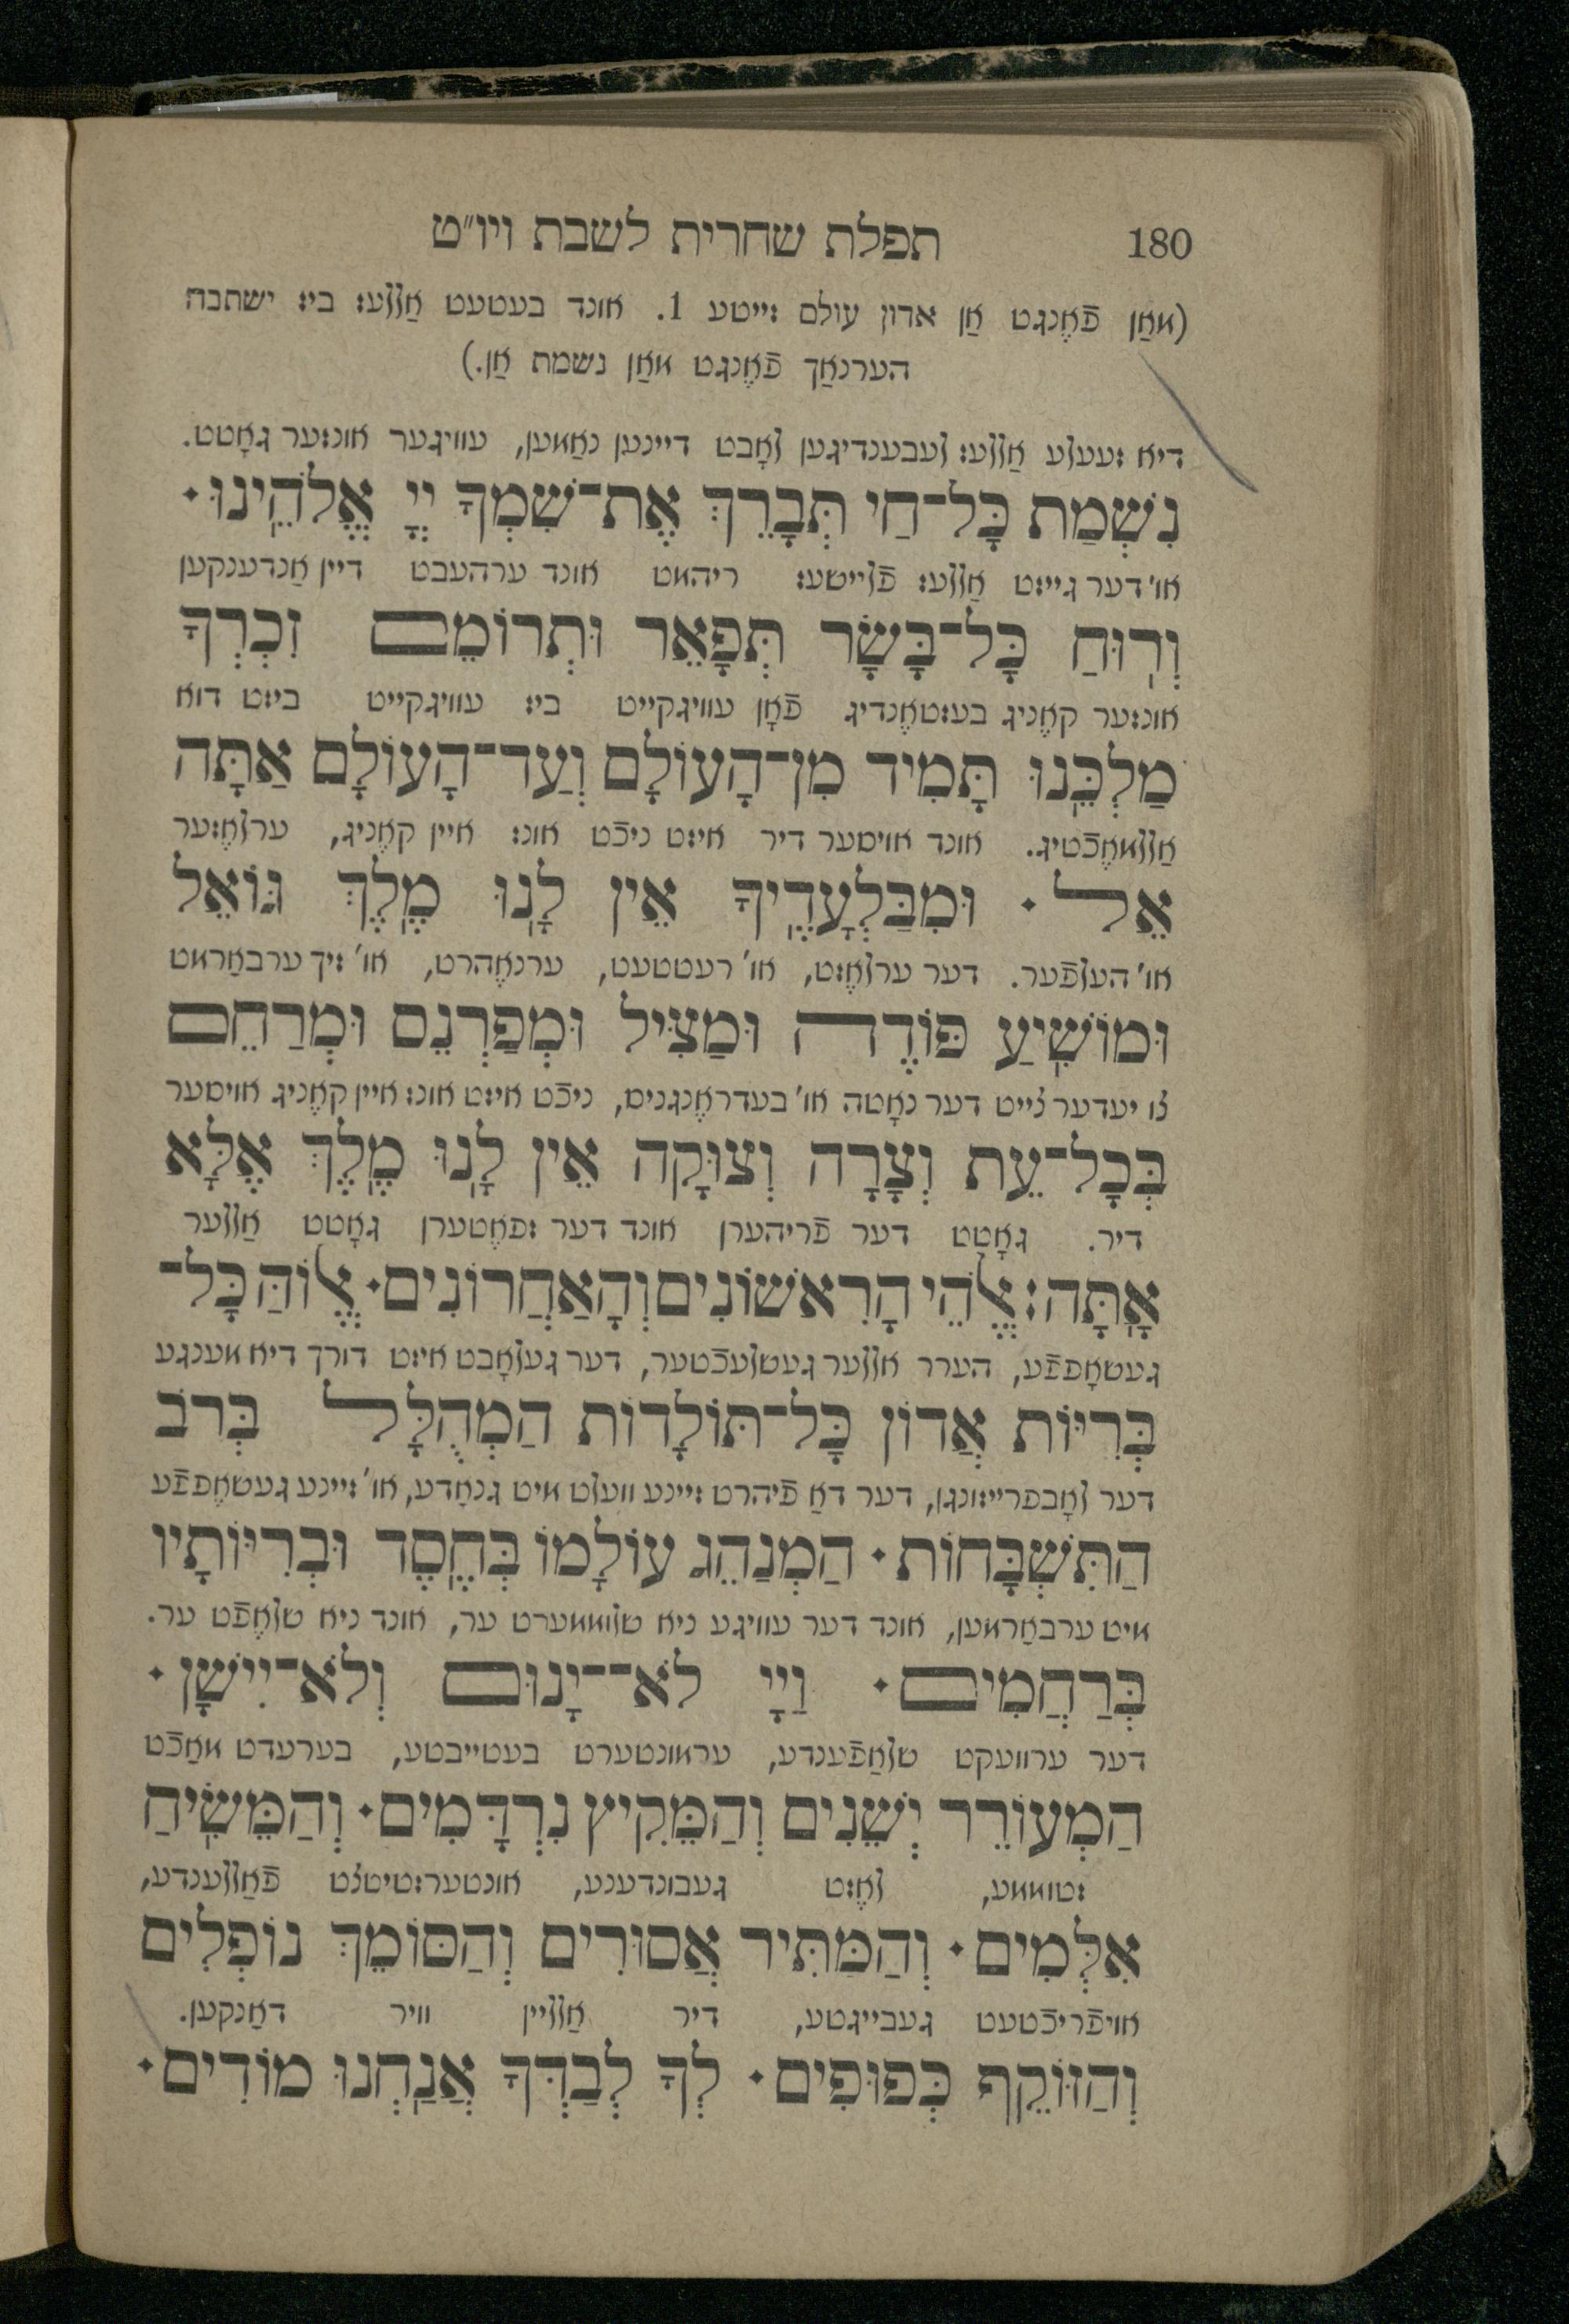 180 תפלת שחרית לשבת ויו״ט
(מאַן פֿאֶנגט אַן אדון עולם זייטע 1. אונד בעטעט אַללעז ביז ישתבח
הערנאַך פֿאֶנגט מאַן נשמת אַן.)
דיא זעעלע אַללעז לעבענדיגען לאָבט דיינען נאַמען, עוויגער אונזער גאָטט.
נִשְׁמַת כָּל־חַי תְּבָרֵךְ אֶת־שִׁמְךָ יְיָ אֱלֹהֵינוּ ·
או׳ דער גייזט אַללעז פֿלײשעז ריהמט אונד ערהעבט דיין אַנדענקען
וְרוּחַ כָּל־בָּשָׂר תְּפָאֵר וּתְרוֹמֵם זִכְרְךָ
אונזער קאֶניג בעזטאֶנדיג פֿאָן עוויגקייט ביז עוויגקייט ביזט דוא
מַלְכֵּנוּ תָּמִיד מִן־הָעוֹלָם וְעַד־הָעוֹלָם אַתָּה
אַללמאֶכֿטיג. אונד אויסער דיר איזט ניכֿט אונז איין קאֶניג, ערלאֶזער
אֵל · וּמִבַּלְעָדֶיךָ אֵין לָנוּ מֶלֶךְ גּוֹאֵל
או׳ העלפֿער. דער ערלאֶזט, או׳ רעטטעט, ערנאֶהרט, או׳ זיך ערבאַרמט
וּמוֹשִׁיעַ פּוֹדֶה וּמַצִּיל וּמְפַרְנֵס וּמְרַחֵם
צו יעדער צייט דער נאָטה או׳ בעדראֶנגניס, ניכֿט איזט אונז איין קאֶניג אויסער
בְּכָל־עֵת וְצָרָה וְצוּקָה אֵין לָנוּ מֶלֶךְ אֶלָּא
דיר. גאָטט דער פֿריהערן אונד דער זפּאֶטערן גאָטט אַללער
אָתָּה: אֱלֹהֵי הָרִאשׁוֹנִים וְהָאַחֲרוֹנִים · אֱלוֹהַּ כָּל־
געשאָפּפֿע, הערר אללער געשלעכֿטער, דער געלאָבט איזט דורך דיא מענגע
בְּרִיּוֹת אֲדוֹן כָּל־תּוֹלָדוֹת הַמְהֻלָּל בְּרֹב
דער לאָבפּרייזונגן, דער דאַ פֿיהרט זיינע וועלט מיט גנאָדע, או׳ זיינע געשאֶפּפֿע
הַתִּשְׁבָּחוֹת · הַמְנַהֵג עוֹלָמוֹ בְּחֶסֶד וּבְרִיּוֹתָיו
מיט ערבאַרמען, אונד דער עוויגע ניא שלוממערט ער, אונד ניא שלאֶפֿט ער.
בְּרַחֲמִים · וַיְיָ לֹא־יָנוּם וְלֹא־יִישָׁן ·
דער ערוועקט שלאַפֿענדע, ערמונטערט בעטייבטע, בערעדט מאַכֿט
הַמְעוֹרֵר יְשֵׁנִים וְהַמֵּקִיץ נִרְדָּמִים · וְהַמֵּשִׂיחַ
זטוממע, לאֶזט געבונדענע, אונטערזטיטצט פֿאַללענדע,
אִלְּמִים · וְהַמַּתִּיר אֲסוּרִים וְהַסּוֹמֵךְ נוֹפְלִים
אויפֿריכֿטעט געבייגטע, דיר אַלליין וויר דאַנקען.
וְהַזּוֹקֵף כְּפוּפִים · לְךָ לְבַדְּךָ אֲנַחְנוּ מוֹדִים ·